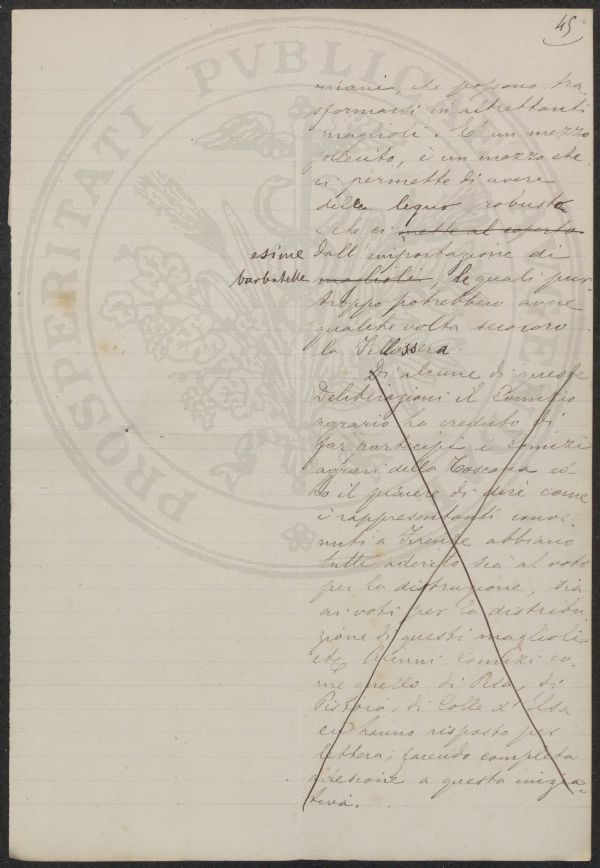 45
miani, che possono tra
sformarsi in altrettanti
maglioli. È un mezzo
sollecito, è un mezzo che
ci permette di avere
delle legno robusto
e che ci mette al coperto
esime dall'importazione di
barbatelle maglioli, le quali pur
troppo potrebbero avere
qualche volta seco loro
la Fillossera.
Di alcune di queste
Deliberazioni il Comizio
agrario ha creduto di
far partecipi i Comizi
agrari della Toscana ed
ho il piacere di dire come
i rappresentanti conve
nuti a Firenze abbiano
tutti aderito sia al voto
per la distruzione, sia
ai voti per la distribu
zione di questi maglioli
Alcuni Comizi co
me quello di Pisa, di
Pistoia, di Colle d'Elsa
ci hanno risposto per
lettera, facendo completa
adesione a questa inizia
tiva.
PROSPERITATI PVBLICAE